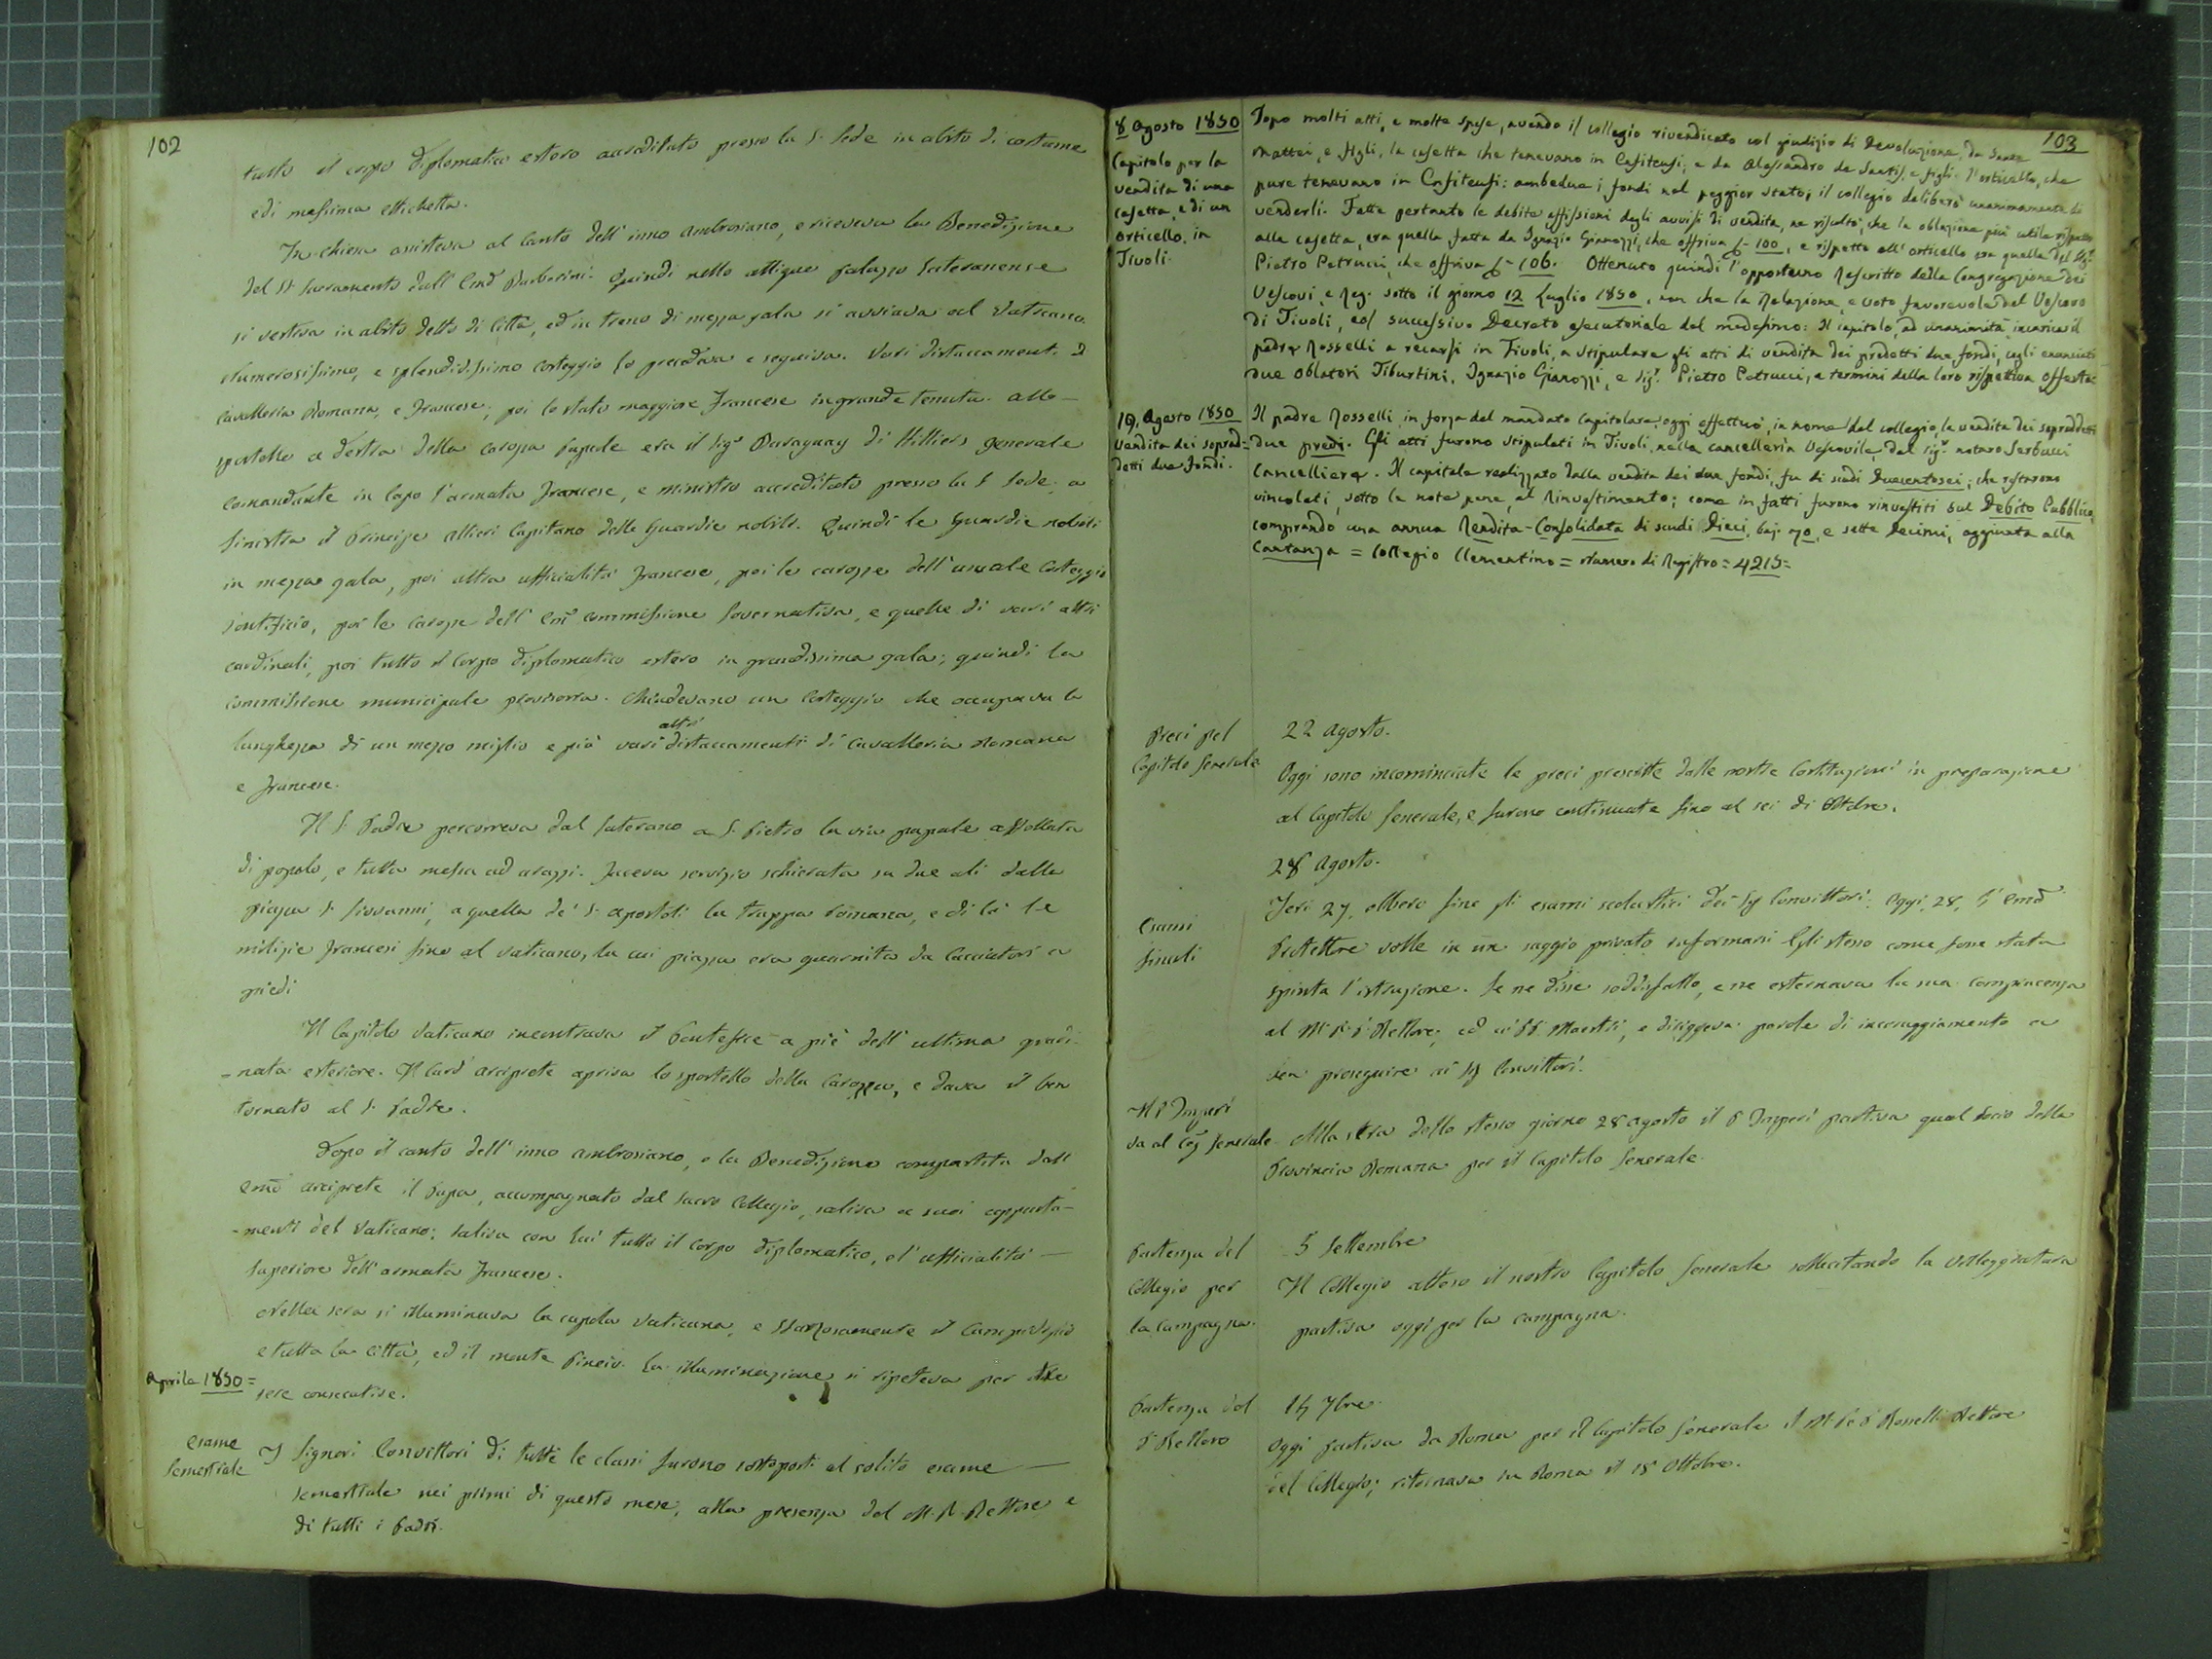 102
tutto il corpo diplomatico estero accreditato presso la S. Sede in abito di costume
e di massima etichetta.
In chiesa assisteva al canto dell' inno Ambrosiano, e riceveva la Benedizione
del SS Sacramento dall' Emo Barberini. Quindi nello attiguo palazzo Lateranense
si vestiva in abito detto di Città, ed in treno di mezza gala si avviava al Vaticano.
Numerosissimo, e splendidissimo corteggio lo precedeva e seguiva. Vari distaccamenti di
Cavalleria Romana, e Francese; poi lo stato maggiore Francese in grande tenuta. Allo
sportello a destra della carozza Papale era il Sigr Baraguay di Hilliers generale
Comandante in Capo l'armata Francese, e ministro accreditato presso la S. Sede; a
sinistra il Principe Altieri Capitano delle Guardie nobili. Quindi le Guardie nobili
in mezza gala, poi altra ufficialità Francese, poi le carozze dell' usuale Corteggio
Pontificio, poi le Carozze dell' Em commissione Governativa, e quelle di vari altri
cardinali, poi tutto il Corpo diplomatico estero in grandissima gala; quindi la
Commissione municipale provisoria. Chiudevano un Corteggio che occupava la
lunghezza di un mezzo miglio e più vari altri distaccamenti di Cavalleria Romana
e Francese.
Il S. Padre percorreva dal Laterano a S. Pietro la via papale affollata
di popolo, e tutta messa ad arazzi. Faceva servizio schierata su due ali dalla
piazza S. Giovanni, a quella de' S. Apostoli la truppa romana, e di là le
milizie francesi fino al Vaticano, la cui piazza era guarnita da Cacciatori a
piedi
Il Capitolo Vaticano incontrava il Pontefice a piè dell' ultima gradi-
-nata esteriore. Il Card arciprete apriva lo sportello della Carozza, e dava il ben
tornato al S. Padre.
Dopo il canto dell' inno Ambrosiano, e la Benedizione compartita dall'
Emo arciprete il Papa, accompagnato dal Sacro Collegio, saliva a' suoi apparta-
-menti del Vaticano; saliva con Lui tutto il Corpo diplomatico, e l' ufficialità
superiore dell' armata Francese.
Nella sera si illuminava la cupola Vaticana, e sfarzosamente il Campidoglio
e tutta la città, ed il monte Pincio. La illuminazione si ripeteva per tre
sere consecutive.
Aprile 1850=
Esame
Semestrale
I Signori Convittori di tutte le classi furono sottoposti al solito esame
semestrale nei primi di questo mese, alla presenza del M. R. Rettore e
di tutti i Padri.
103
8 Agosto 1850
Capitolo per la
vendita di una
casetta, e di un
orticello, in
Tivoli.
Dopo molti atti, e molte spese, avendo il collegio rivendicato col giudizio di Devoluzione, da
Mattei, e figli, la casetta che tenevano in Casitensi, e da Alessandro de Santis, e figli l'orticello, che
pure tenevano in Casitensi: ambedue i fondi nel peggior stato; il collegio deliberò unanimamente di
venderli. Fatte pertanto le debite affissioni degli avvisi di vendita, ne risultò, che la oblazione più utile rispetto
alla casetta, era quella fatta da Ignazio Gianozzi, che offriva 100, e rispetto all' orticello era quella del Sigr
Pietro Petrucci, che offriva 106. Ottenuto quindi l' opportuno Rescritto della Congregazione dei
Vescovi, e Reg. sotto il giorno 12 Luglio 1850, non che la Relazione, e voto favorevole del Vescovo
di Tivoli, col successivo Decreto esecutoriale del medesimo: Il capitolo, ad unanimità incarica il
padre Rosselli a recarsi in Tivoli, a stipulare gli atti di vendita dei predetti due fondi, cogli enunciati
due oblatori Tiburtini, Ignazio Gianozzi, e Sigr. Pietro Petrucci, a termini della loro rispettiva offerta.
19, Agosto 1850
Vendita dei soprad-
detti due fondi.
Il padre Rosselli in forza del mandato Capitolare, oggi effettuò, in nome del collegio, la vendita dei sopraddetti
due predi. Gli atti furono stipulati in Tivoli, nella cancelleria Vescovile, dal sigr. notaro Serbucci
Cancelliere. Il capitale realizzato dalla vendita dei due fondi, fu di scudi Duecentosei; che restarono
vincolati, sotto le note pene, al Rinvestimento; come in fatti furono rinvestiti sul Debito Pubblico,
comprando una annua Rendita-Consolidata di scudi Dieci, baj. 70, e sette Decimi, aggiunta alla
Cartanza = Collegio Clementino = Numero di Registro = 4215=
Preci pel
Capitolo Generale
22 Agosto.
Oggi sono incominciate le preci prescritte dalle nostre Costituzioni in preparazione
al Capitolo Generale, e furono continuate fino al sei di Ottobre.
28 Agosto.
Esami
finali
Jeri 27, ebbero fine gli esami scolastici dei Sig Convittori. Oggi, 28, l' Emo
Protettore volle in un saggio privato informarsi Egli stesso come fosse stata
spinta l' istruzione. Se ne disse soddisfatto, e ne esternava la sua compiacenza
al M. R. P. Rettore, ed ai PP. Maestri, e dirigeva parole di incoraggiamento a
ben proseguire ai Sig Convittori.
Il P Imperi
va al Cap Generale
Alla sera dello stesso giorno 28 agosto il P Imperi partiva qual Socio della
Provincia Romana per il Capitolo Generale.
Partenza del
Collegio per
la Campagna.
5 Settembre
Il Collegio atteso il nostro Capitolo Generale sollecitando la Villeggiatura
partiva oggi per la campagna.
Partenza del
P. Rettore
14 7bre.
Oggi partiva da Roma per il Capitolo Generale il M. R. P. Rosselli Rettore
del Collegio; ritornava in Roma il 18 Ottobre.